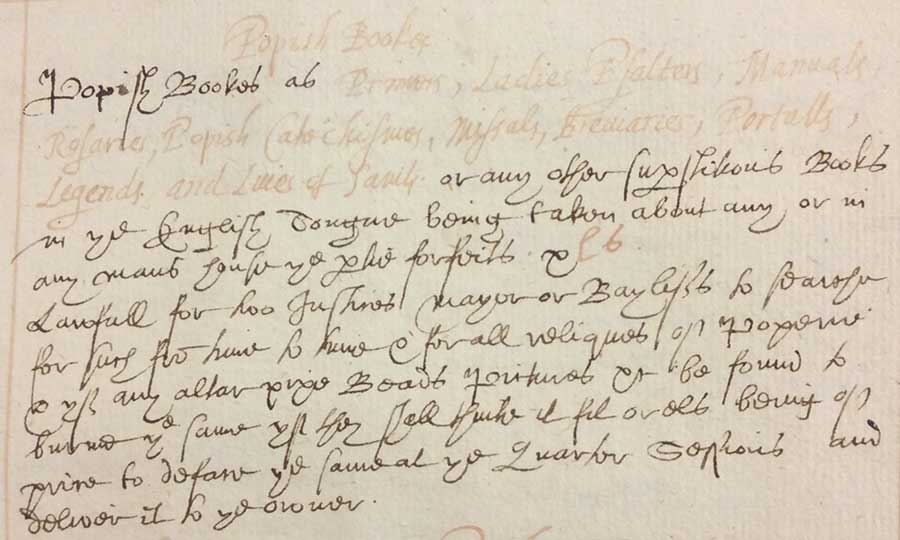 Popish Bookes
Popish Bookes as Primers, Ladies Psalters, Manuals,
Rosaries, Popish Catechismes, Missals, Breviaries, Portalls,
Legends and Lives of Saints or any other supstitious Books
in ye English Tongue being taken about any or in
any mans house ye ptie forfeits
Lawfull for two Justices Mayor or Bayliffs to searche
for such frō time to time & for all reliques off Poperie
& yff any altar pixe Beads Pictures &c be found to
burne ye same yff they shall thinke it fit or els being off
price to deface ye same at ye Quarter Sessions and
deliver it to ye owner.